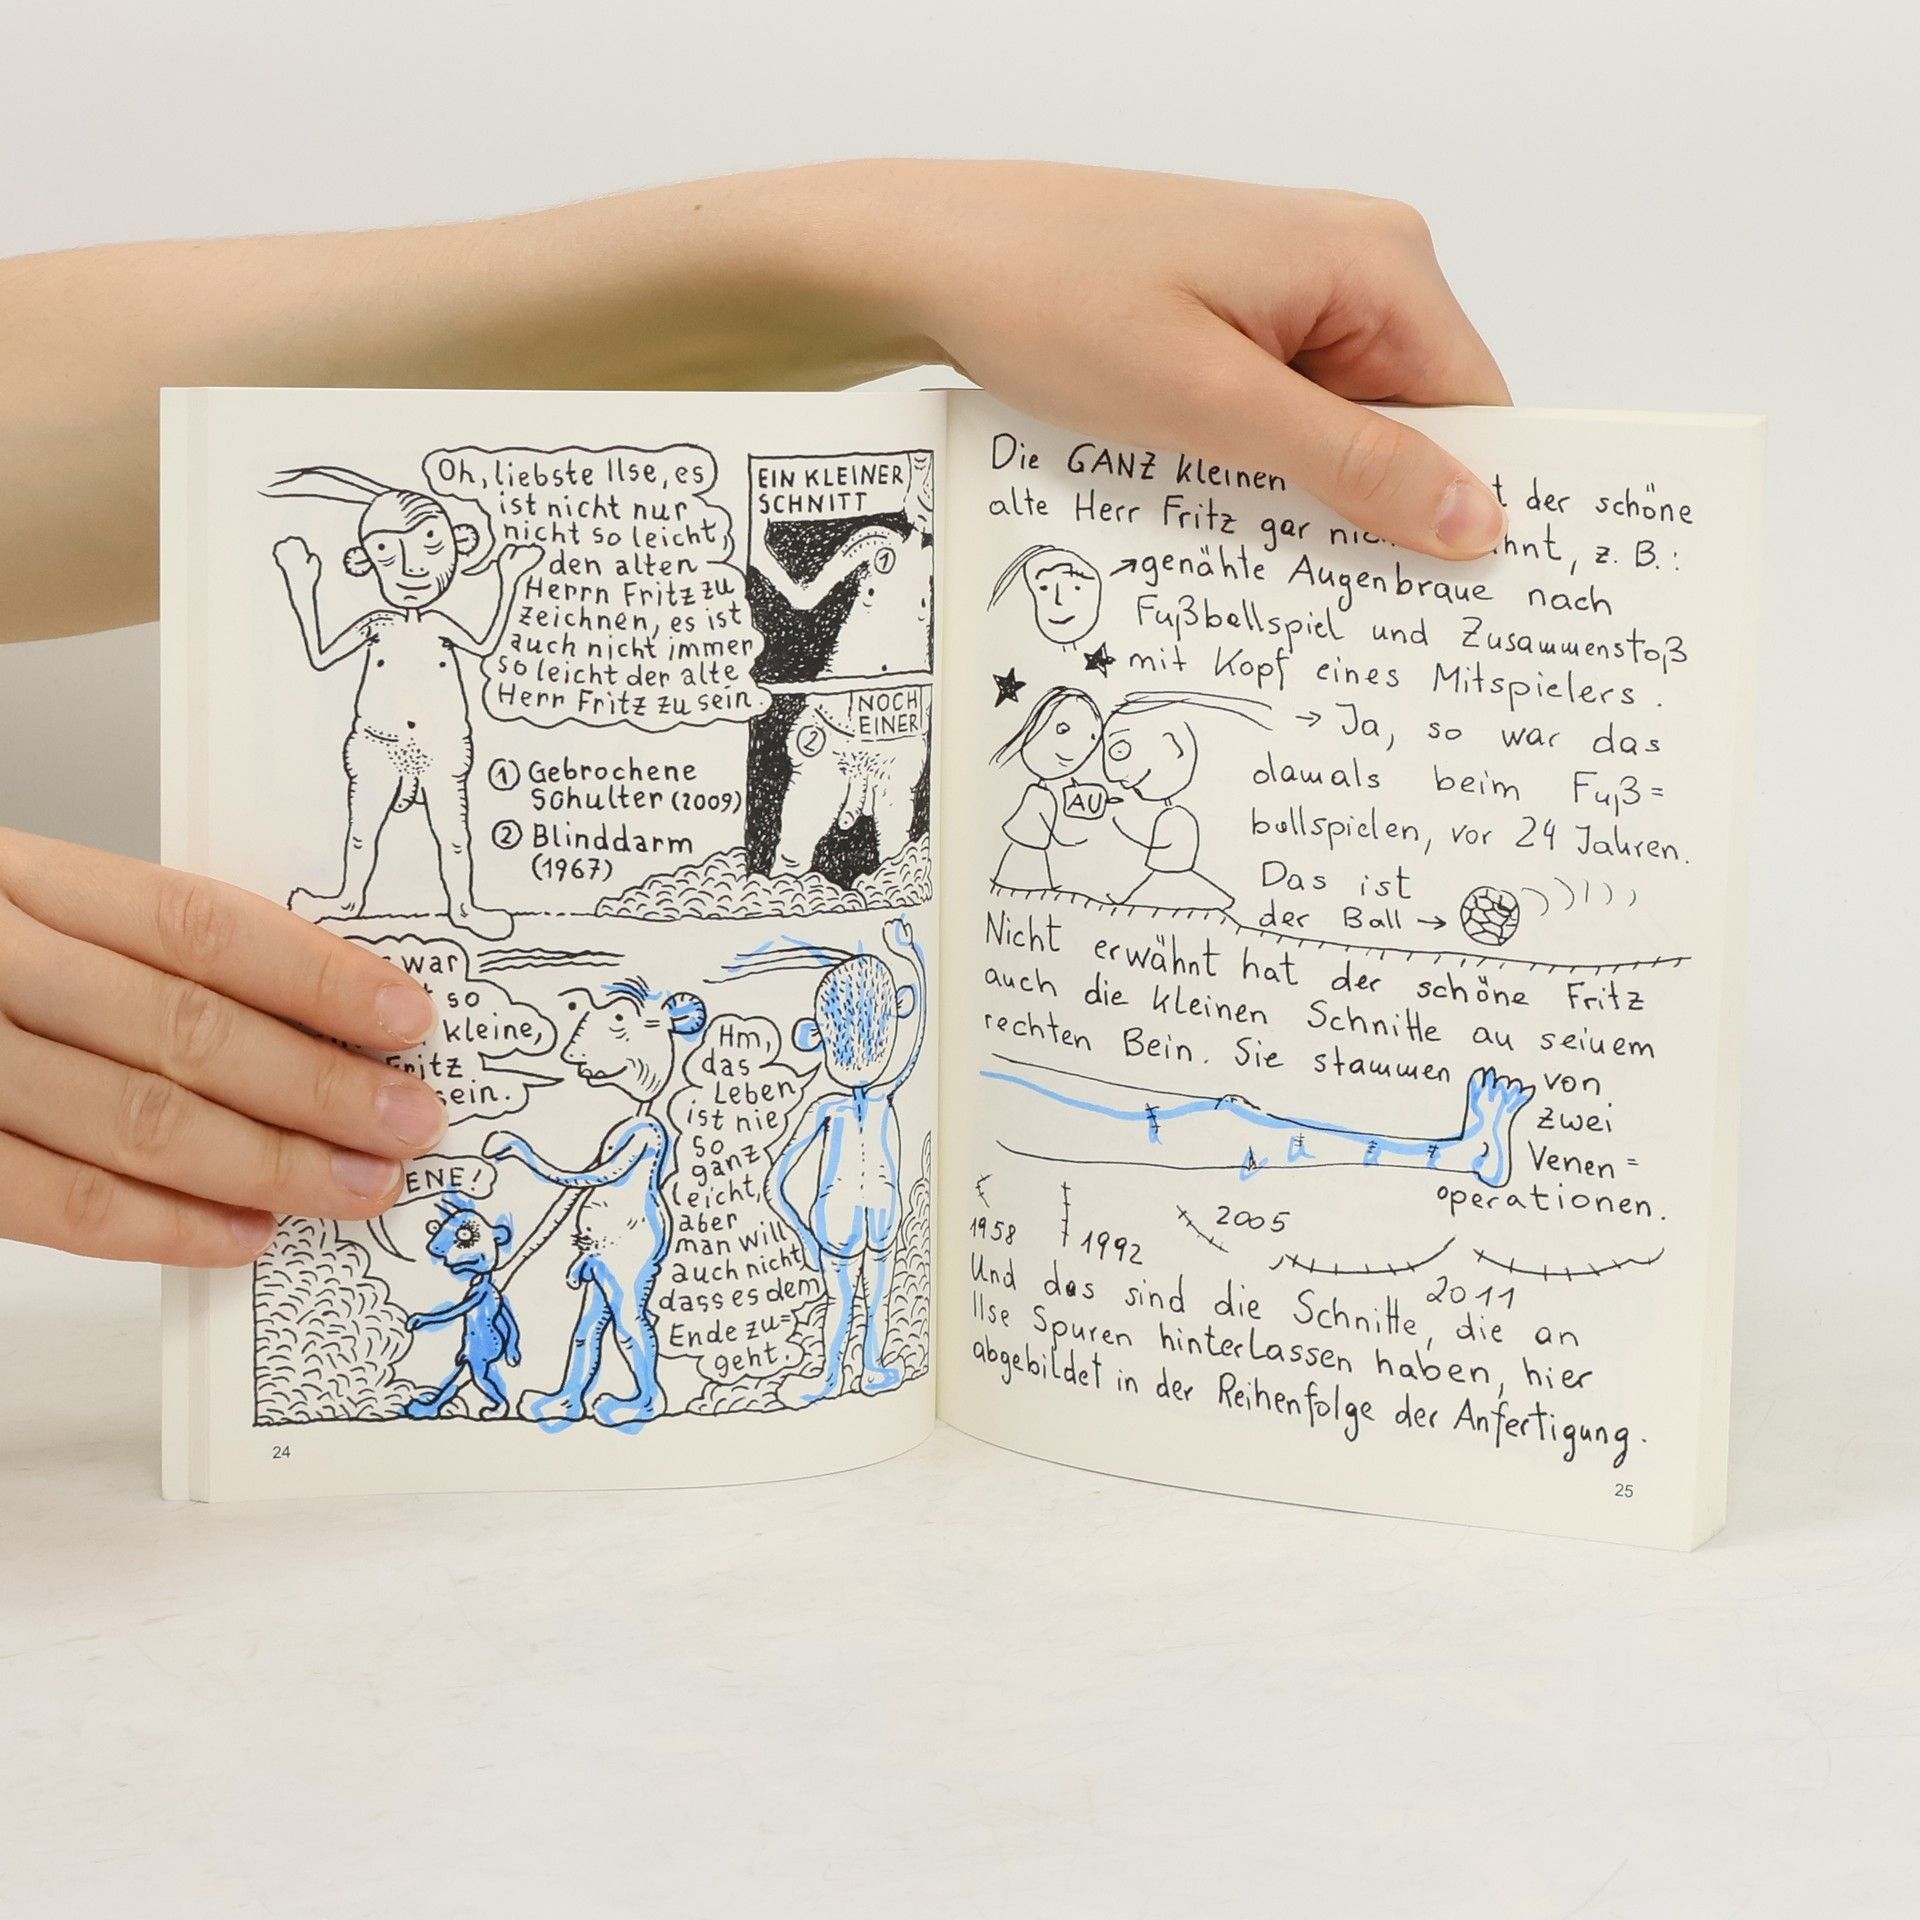 Oh, liebste Ilse, es
ist nicht nur
nicht so leicht,
den alten
Herrn Fritz zu
zeichnen, es ist
auch nicht immer
so leicht der alte
Herr Fritz zu sein.
EIN KLEINER
SCHNITT
①
NOCH
EINER
②
① Gebrochene
Schulter (2009)
② Blinddarm
(1967)
war
so
kleine,
Fritz
sein.
ENE!
Hm,
das
Leben
ist nie
so
ganz
leicht,
aber
man will
auch nicht,
dass es dem
Ende zu=
geht.
24
Die GANZ kleinen t der schöne
alte Herr Fritz gar hnt, z. B.:
genähte Augenbraue nach
Fußballspiel und Zusammenstoß
mit Kopf eines Mitspielers.
→ Ja, so war das
damals beim Fuß=
ballspielen, vor 24 Jahren.
AU
Das ist
der Ball →
Nicht erwähnt hat der schöne Fritz
auch die kleinen Schnitte an seinem
rechten Bein. Sie stammen von
zwei
Venen=
operationen.
1958
1992
2005
2011
Und das sind die Schnitte, die an
Ilse Spuren hinterlassen haben, hier
abgebildet in der Reihenfolge der Anfertigung.
25